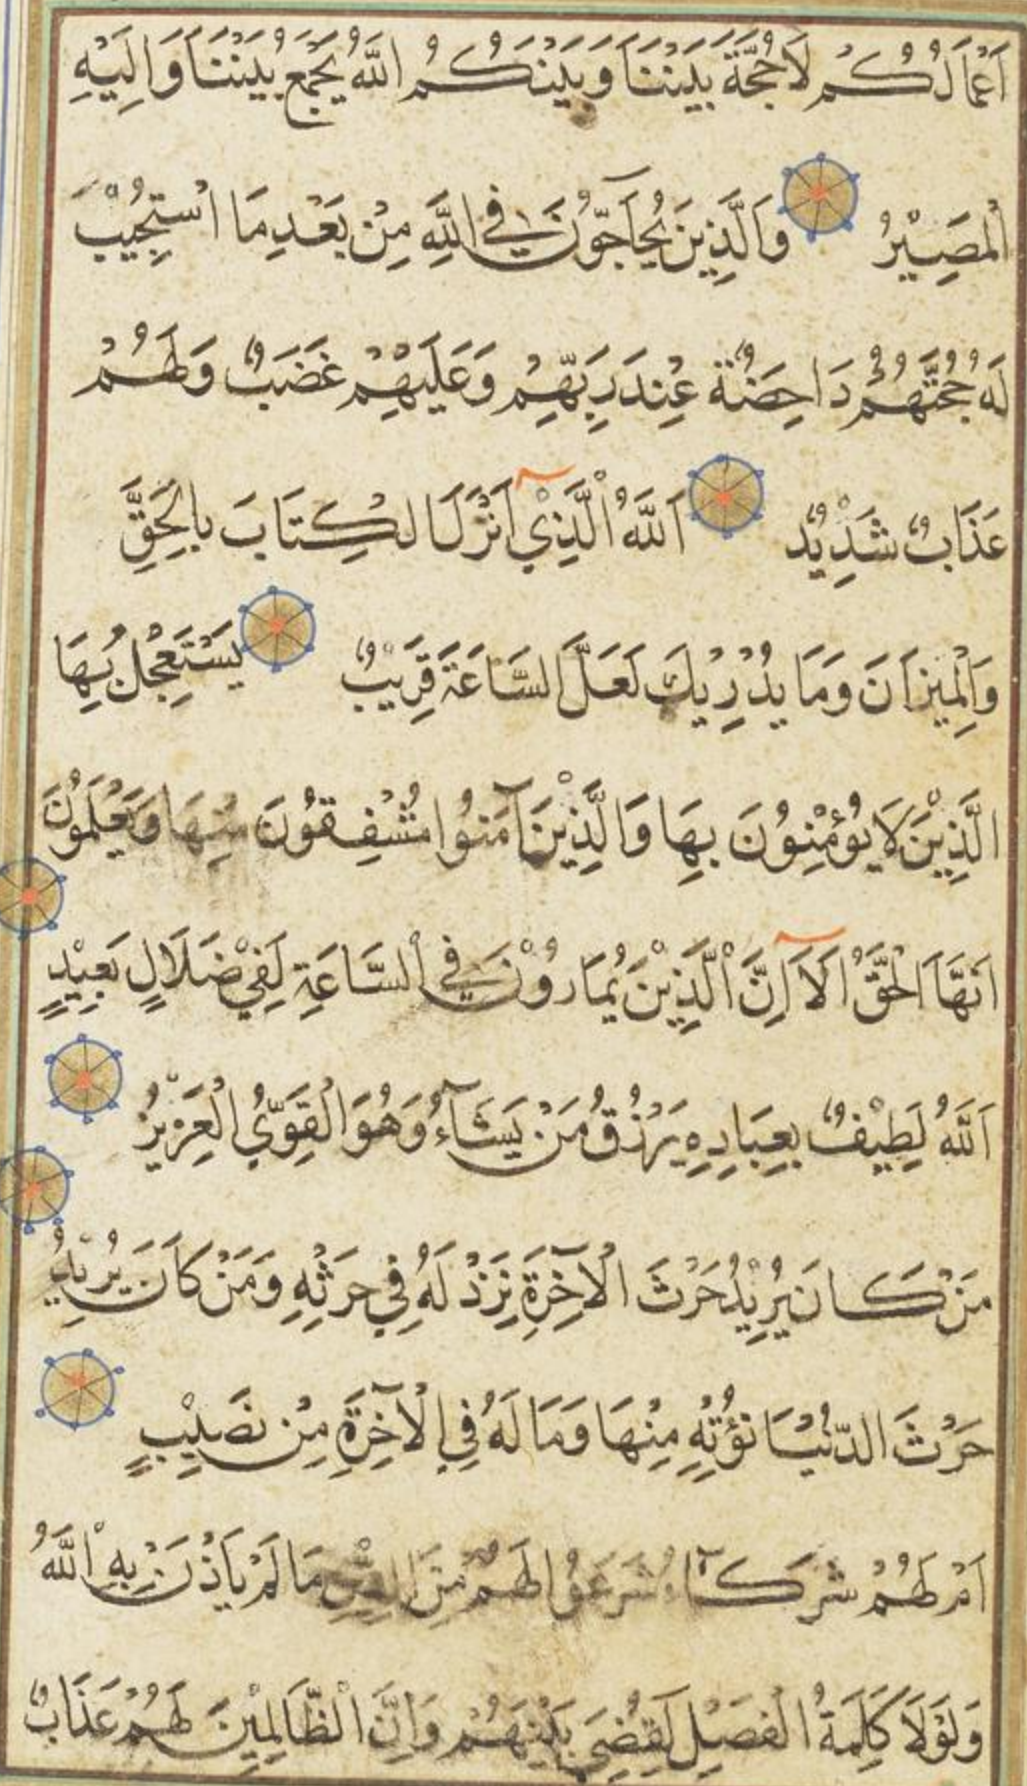 اَعْمَالُكُمْ لَا حُجَّةَ بَيْنَنَا وَبَيْنَكُمُ اللّٰهُ يَجْمَعُ بَيْنَنَا وَاِلَيْهِ
الْمَصِيْرُ وَالَّذِينَ يُحَاجُّوْنَ فِي اللّٰهِ مِنْ بَعْدِ مَا اسْتُجِيْبَ
لَهُ حُجَّتُهُمْ دَاحِضَةٌ عِنْدَ رَبِّهِمْ وَعَلَيْهِمْ غَضَبٌ وَلَهُمْ
عَذَابٌ شَدِيْدٌ اَللّٰهُ الَّذِيْ اَنْزَلَ الْكِتَابَ بِالْحَقِّ
وَالْمِيْزَانَ وَمَا يُدْرِيْكَ لَعَلَّ السَّاعَةَ قَرِيْبٌ يَسْتَعْجِلُ بِهَا
الَّذِيْنَ لَا يُؤْمِنُوْنَ بِهَا وَالَّذِيْنَ آمَنُوا مُشْفِقُوْنَ مِنْهَا وَيَعْلَمُوْنَ
اَنَّهَا الْحَقُّ اَلَآ اِنَّ الَّذِيْنَ يُمَارُوْنَ فِي السَّاعَةِ لَفِيْ ضَلَالٍ بَعِيْدٍ
اَللّٰهُ لَطِيْفٌ بِعِبَادِهِ يَرْزُقُ مَنْ يَشَآءُ وَهُوَ الْقَوِيُّ الْعَزِيْزُ
مَنْ كَانَ يُرِيْدُ حَرْثَ الْآخِرَةِ نَزِدْ لَهُ فِي حَرْثِهِ وَمَنْ كَانَ يُرِيْدُ
حَرْثَ الدُّنْيَا نُؤْتِهِ مِنْهَا وَمَا لَهُ فِي الْآخِرَةِ مِنْ نَصِيْبٍ
اَمْ لَهُمْ شُرَكَآءُ شَرَعُوا لَهُمْ مِنَ الدِّيْنِ مَا لَمْ يَاْذَنْ بِهِ اللّٰهُ
وَلَوْلَا كَلِمَةُ الْفَصْلِ لَقُضِيَ بَيْنَهُمْ وَاِنَّ الظَّالِمِيْنَ لَهُمْ عَذَابٌ